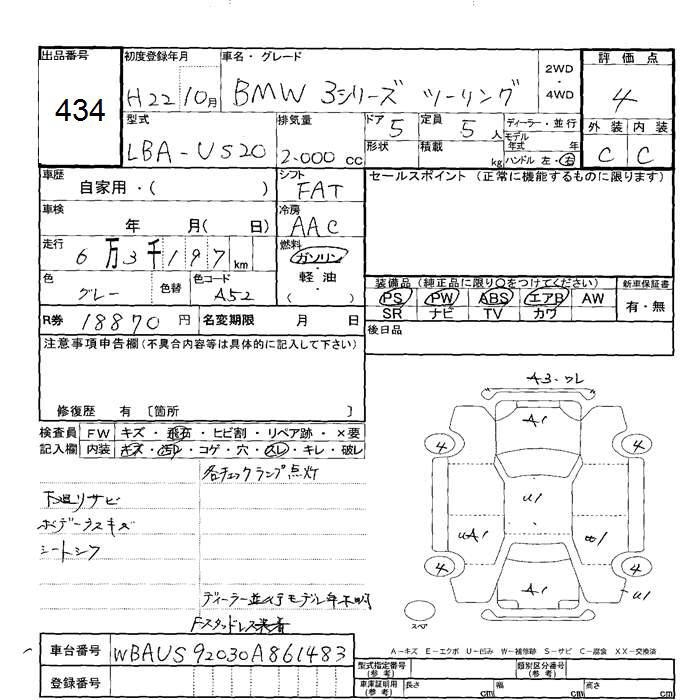 出品番号 初度登録年月 車名・グレード 2WD・4WD 評価点
434 H22 10月 BMW 3シリーズ ツーリング 4
型式 排気量 ドア 5 定員 5人 ディーラー・並行 外装 内装
LBA-US20 2.000 cc 形状 積載 kg モデル年式 年 ハンドル 左・右 C C
車歴 自家用・( ) シフト FAT セールスポイント (正常に機能するものに限ります)
車検 年 月( 日) 冷房 AAC
走行 6万3千197km 燃料 ガソリン・軽油 ( )
色 グレー 色替 色コード A52 装備品 (純正品に限り○をつけてください) 新車保証書
PS PW ABS エアB AW 有・無
SR ナビ TV カワ
R券 18870円 名変期限 月 日 後日品
注意事項申告欄(不具合内容等は具体的に記入して下さい)
修復歴 有 〔箇所 〕
検査員 FW キズ・飛石・ヒビ割・リペア跡・×要
記入欄 内装 キズ・汚れ・コゲ・穴・スレ・キレ・破レ
各チェックランプ点灯
下廻りサビ
ボデーウスキズ
シートシワ
ディーラー並行モデル年不明
Fスタッドレス装着
A3・ワレ
A1
4 4
U1
UA1 U1
4 4
A1
U1
スペア
A-キズ E-エクボ U-凹み W-補修跡 S-サビ C-腐食 XX-交換済
車台番号 WBAUS92030A861483
登録番号
型式指定番号(参考) 類別区分番号(参考)
車庫証明用(参考) 長さ cm 幅 cm 高さ cm